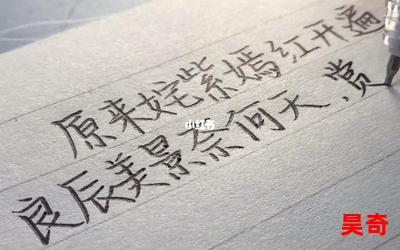 原来姹紫嫣红开遍
良辰美景奈何天,赏
小红书
昊奇